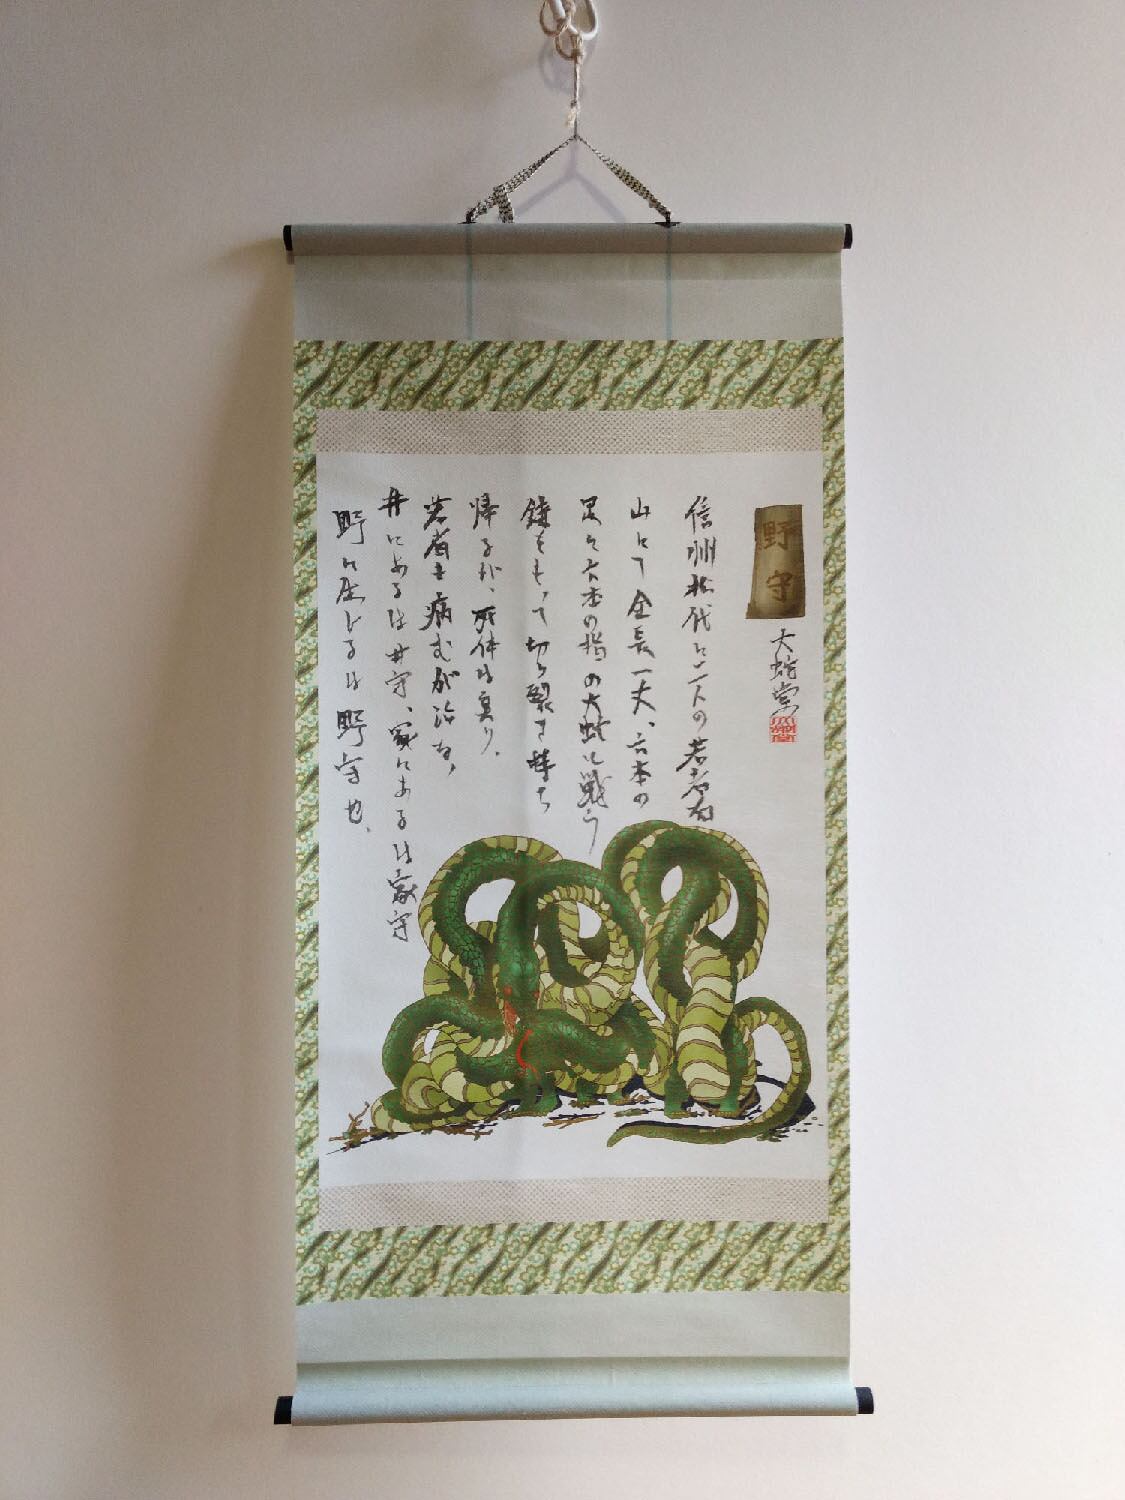 野守
大蛇堂
信州松代に二人の若者有
山にて全長一丈、六本の
足に六本の指の大蛇と戦う
鎌をもって切り裂き持ち
帰るが、死体は臭り、
若者も病むが治る、
井にあるは井守、家にあるは家守
野に在しるは野守也、